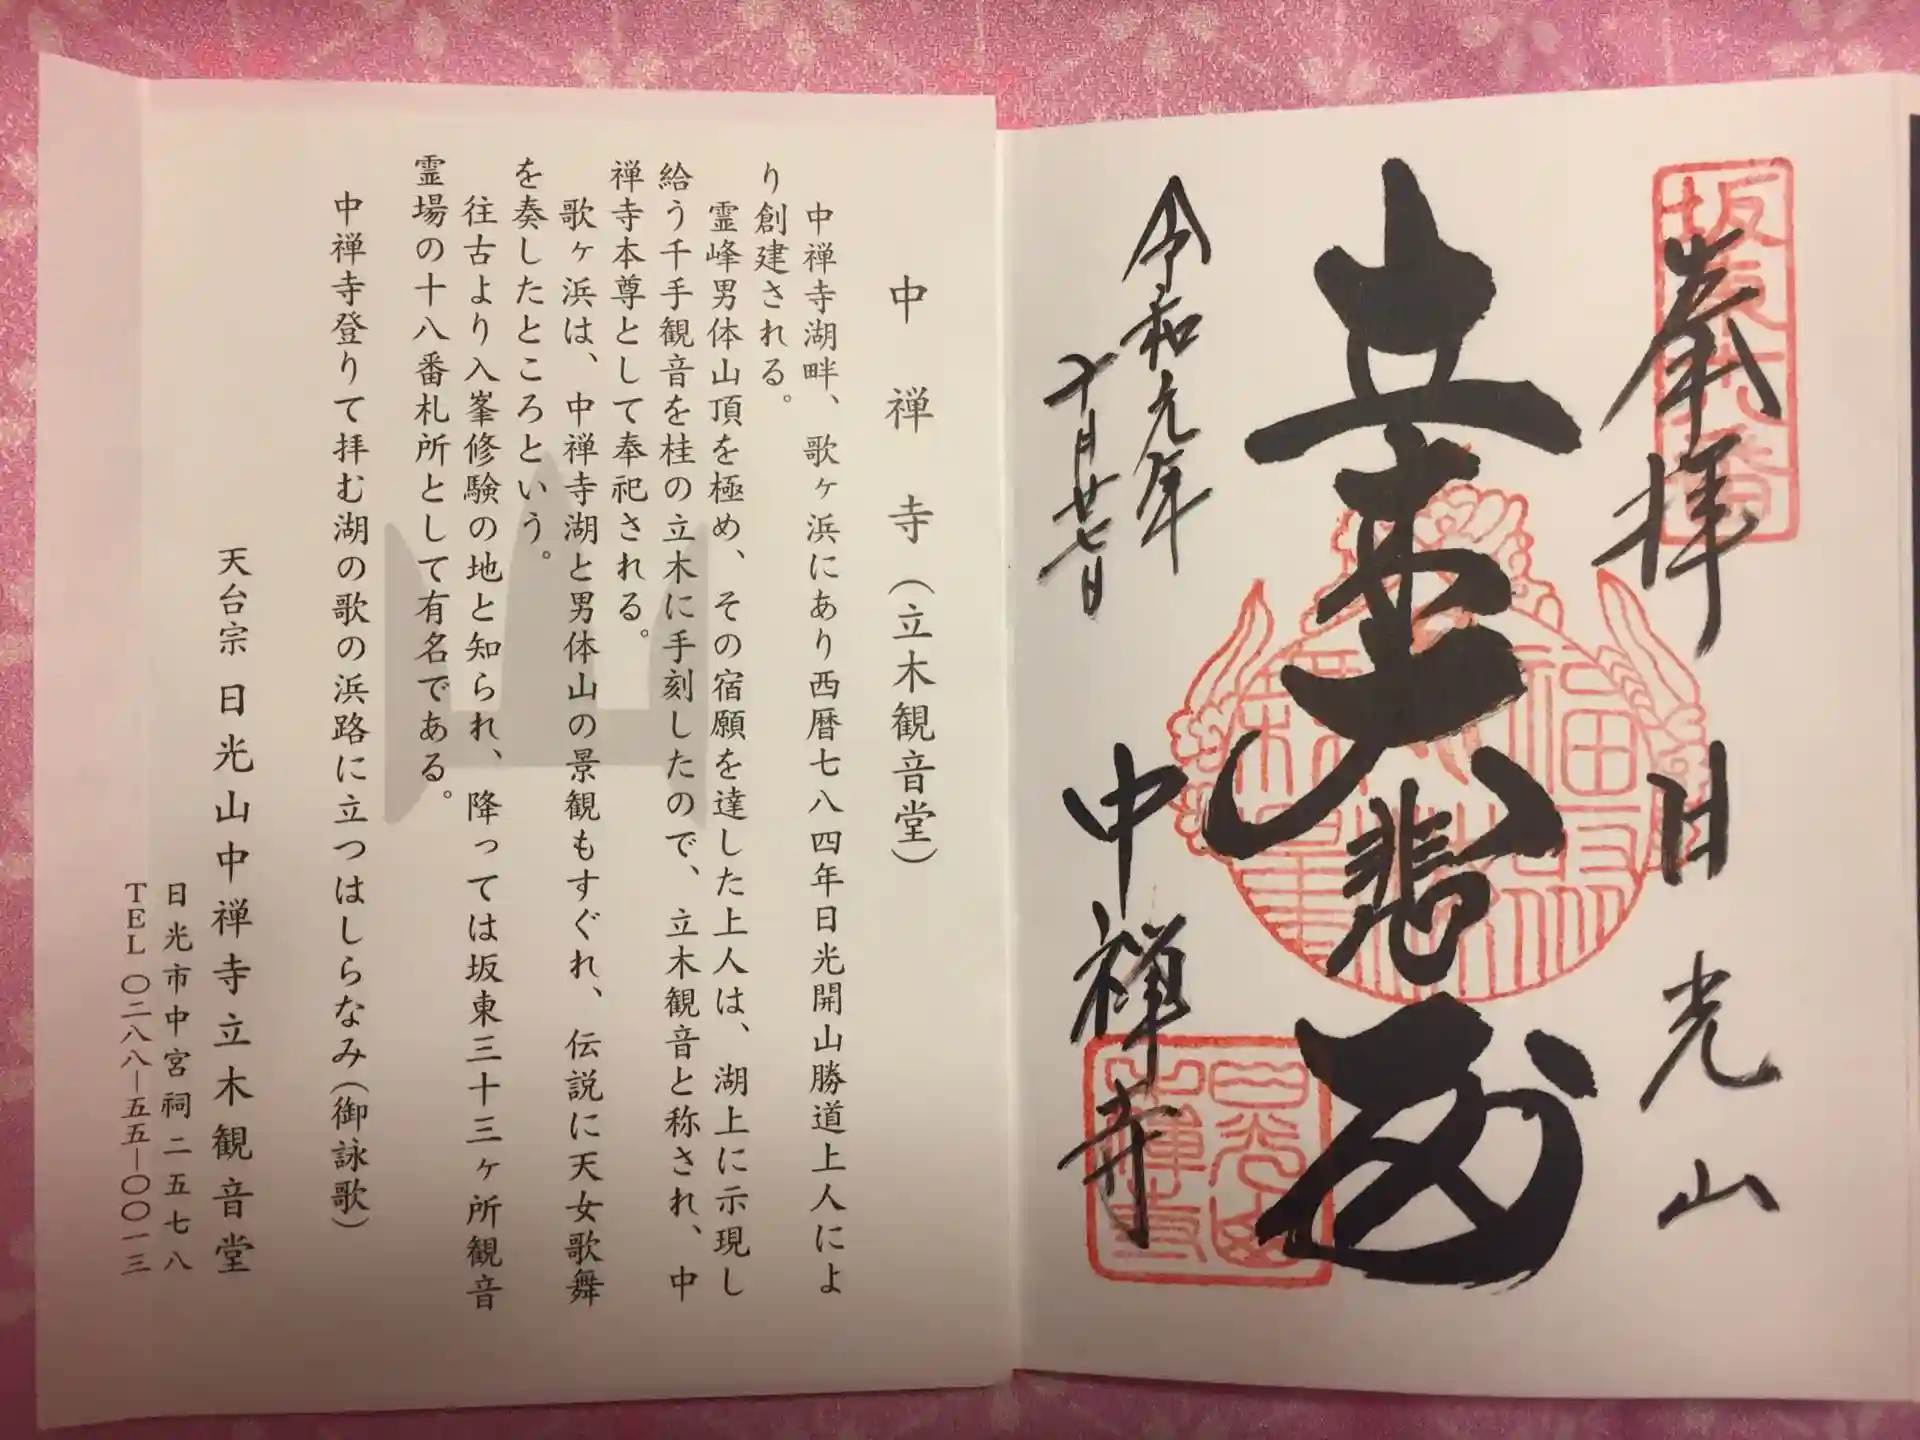 坂東十八番
奉拝
日光山
立木大悲
令和元年
十月廿七日
中禅寺
中禅寺（立木観音堂）
中禅寺湖畔、歌ヶ浜にあり西暦七八四年日光開山勝道上人によ
り創建される。
霊峰男体山頂を極め、その宿願を達した上人は、湖上に示現し
給う千手観音を桂の立木に手刻したので、立木観音と称され、中
禅寺本尊として奉祀される。
歌ヶ浜は、中禅寺湖と男体山の景観もすぐれ、伝説に天女歌舞
を奏したところという。
往古より入峯修験の地と知られ、降っては坂東三十三ヶ所観音
霊場の十八番札所として有名である。
中禅寺登りて拝む湖の歌の浜路に立つはしらなみ（御詠歌）
天台宗 日光山中禅寺立木観音堂
日光市中宮祠二五七八
TEL 〇二八八―五五―〇〇一三